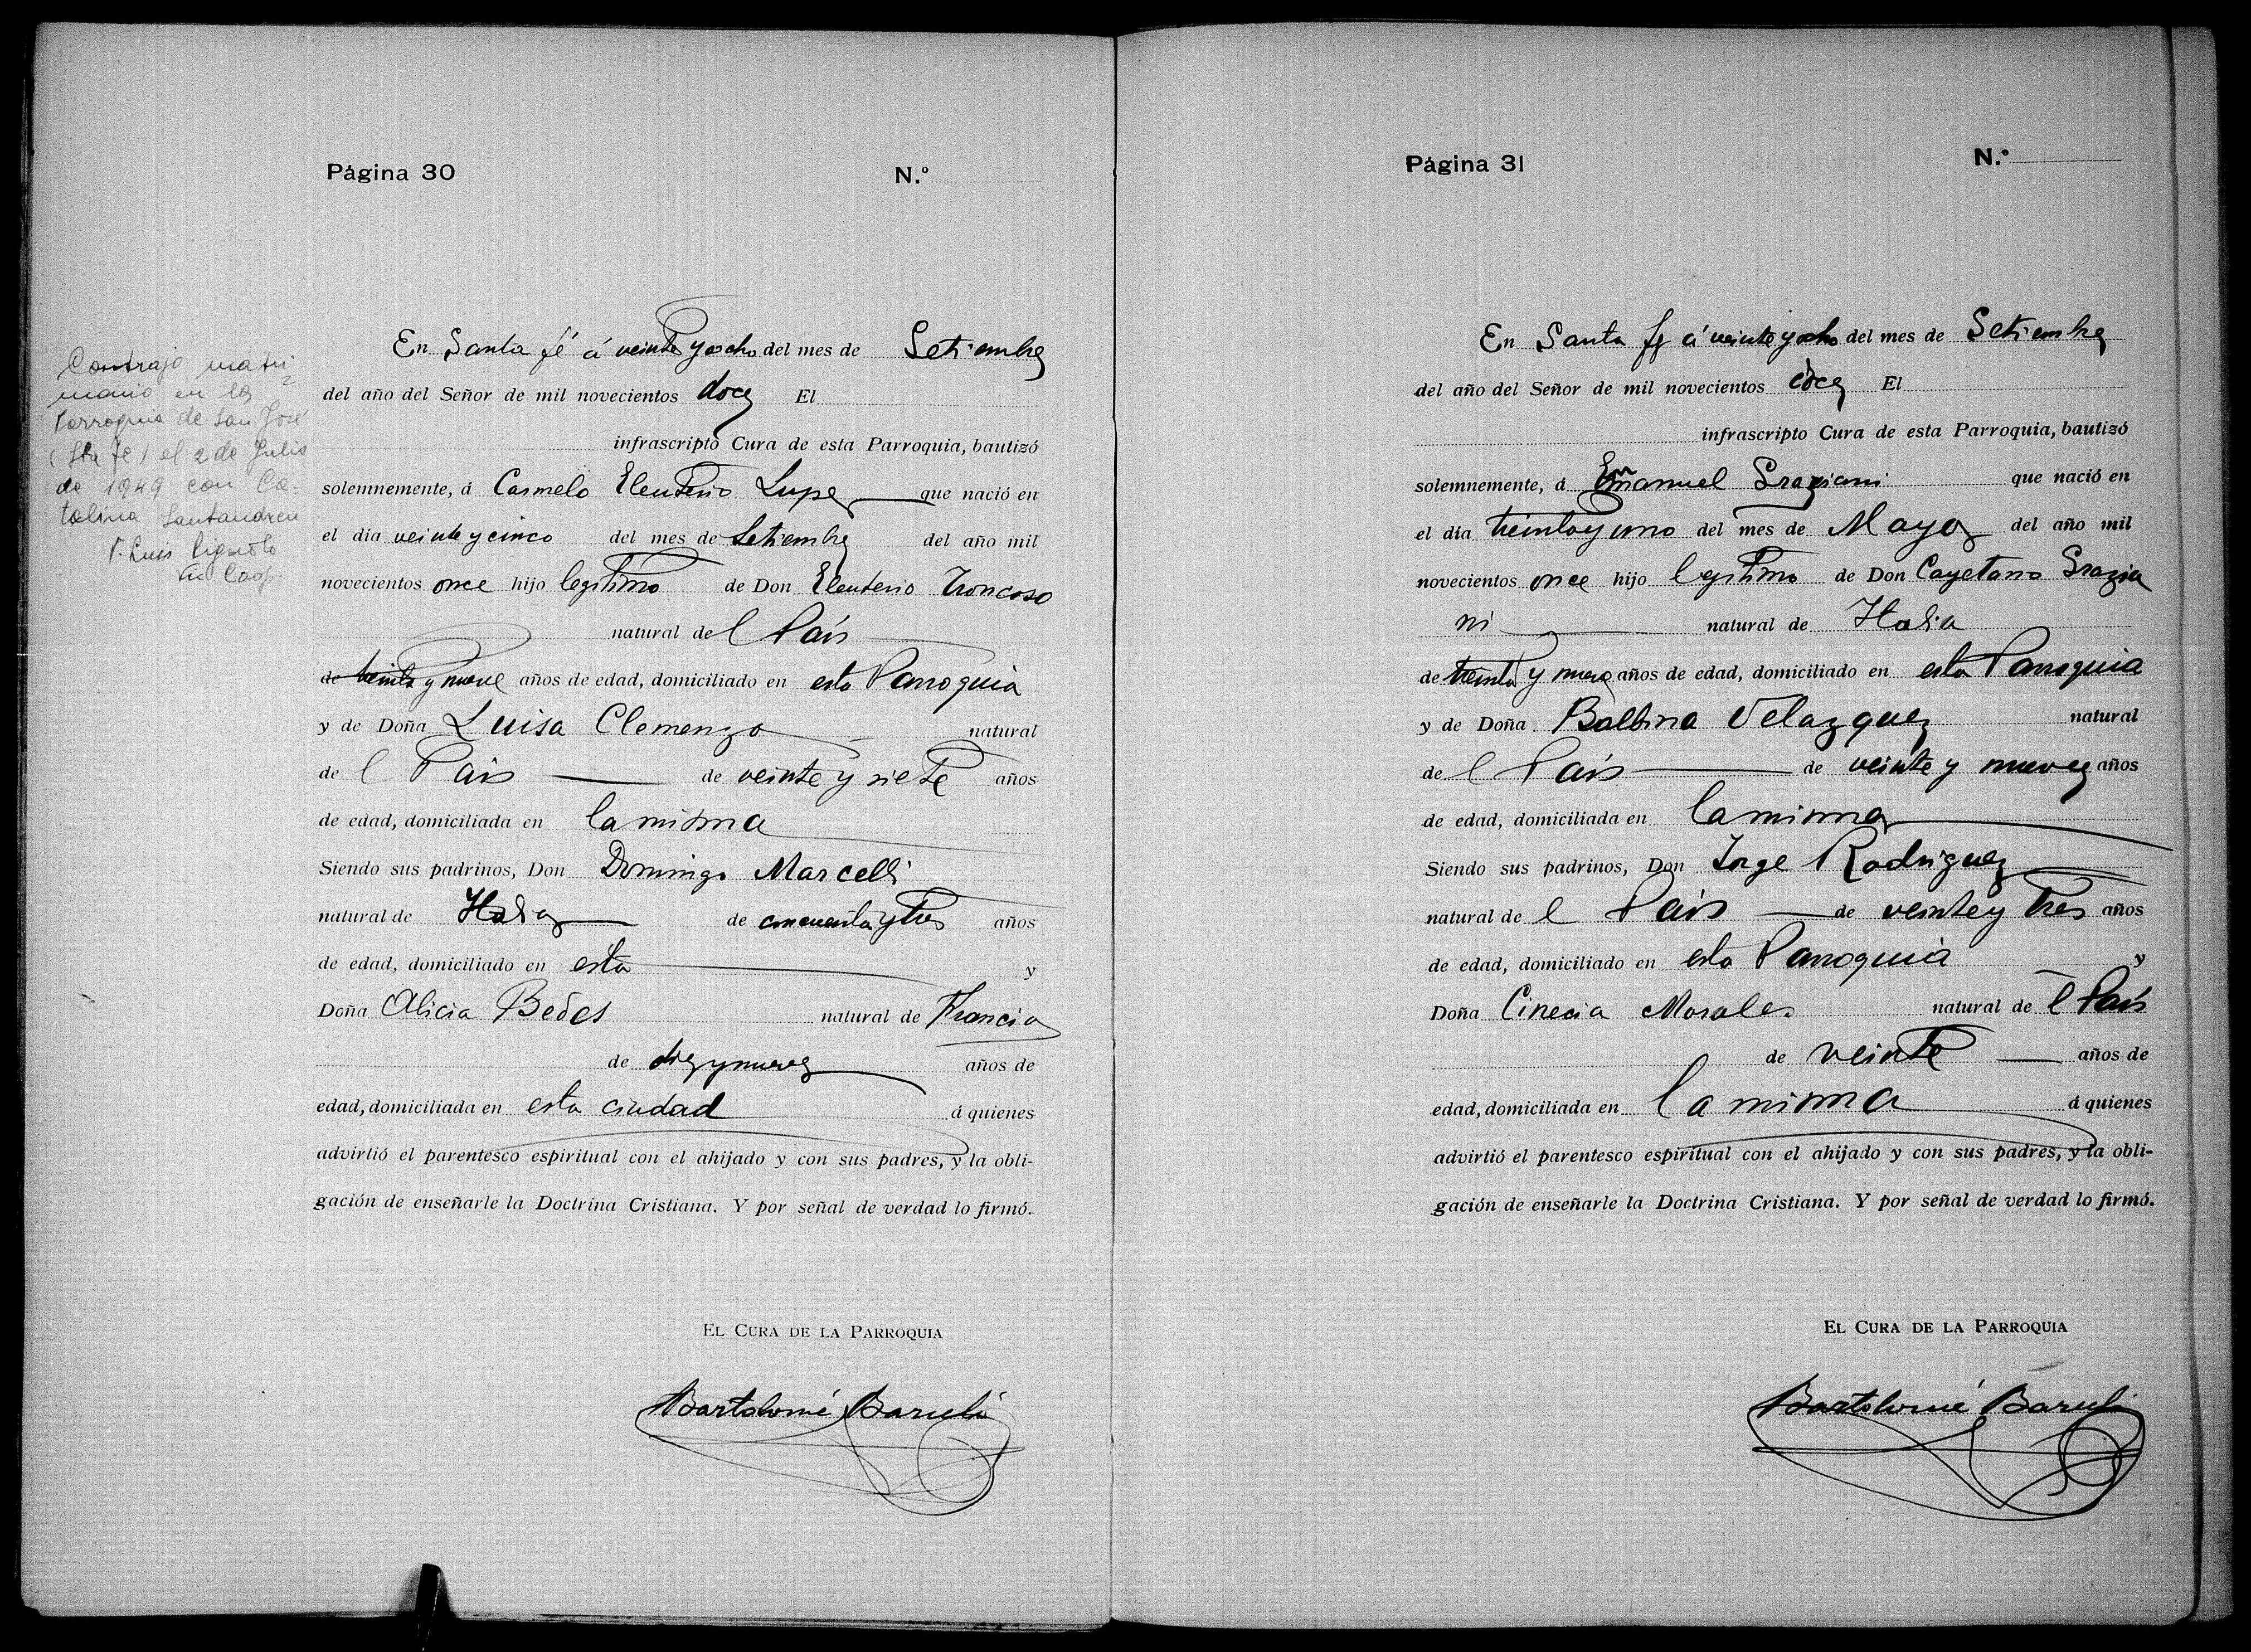 Página 30
N.º
Contrajo matri
monio en la
Parroquia de San José
(Sta Fe) el 2 de Julio
de 1949 con Ca-
talina Santandreu
P. Luis
En Santa Fé á veinte y ocho del mes de Setiembre
del año del Señor de mil novecientos doce El
infrascripto Cura de esta Parroquia, bautizó
solemnemente, á Carmelo Eleuterio Lupe que nació en
el dia veinte y cinco del mes de Setiembre del año mil
novecientos once hijo legitimo de Don Eleuterio Troncoso
natural de l País
de treinta y nueve años de edad, domiciliado en esta Parroquia
y de Doña Luisa Clemenzo natural
de l País de veinte y siete años
de edad, domiciliada en la misma
Siendo sus padrinos, Don Domingo Marcelli
natural de Italia de cincuenta y tres años
de edad, domiciliado en esta y
Doña Alicia natural de Francia
de diez y nueve años de
edad, domiciliada en esta ciudad á quienes
advirtió el parentesco espiritual con el ahijado y con sus padres, y la obli-
gación de enseñarle la Doctrina Cristiana. Y por señal de verdad lo firmó.
EL CURA DE LA PARROQUIA
Bartolomé Barceló
Página 31
N.º
En Santa Fe á veinte y ocho del mes de Setiembre
del año del Señor de mil novecientos doce El
infrascripto Cura de esta Parroquia, bautizó
solemnemente, á Emanuel Graziani que nació en
el día treinta y uno del mes de Mayo del año mil
novecientos once hijo legitimo de Don Cayetano Grazia
ni natural de Italia
de treinta y nueve años de edad, domiciliado en esta Parroquia
y de Doña Balbina Velazquez natural
de l País de veinte y nueve años
de edad, domiciliada en la misma
Siendo sus padrinos, Don Jorge Rodriguez
natural de l País de veinte y tres años
de edad, domiciliado en esta Parroquia y
Doña Cinecia Morales natural de l País
de veinte años de
edad, domiciliada en la misma á quienes
advirtió el parentesco espiritual con el ahijado y con sus padres, y la obli-
gación de enseñarle la Doctrina Cristiana. Y por señal de verdad lo firmó.
EL CURA DE LA PARROQUIA
Bartolomé Barceló